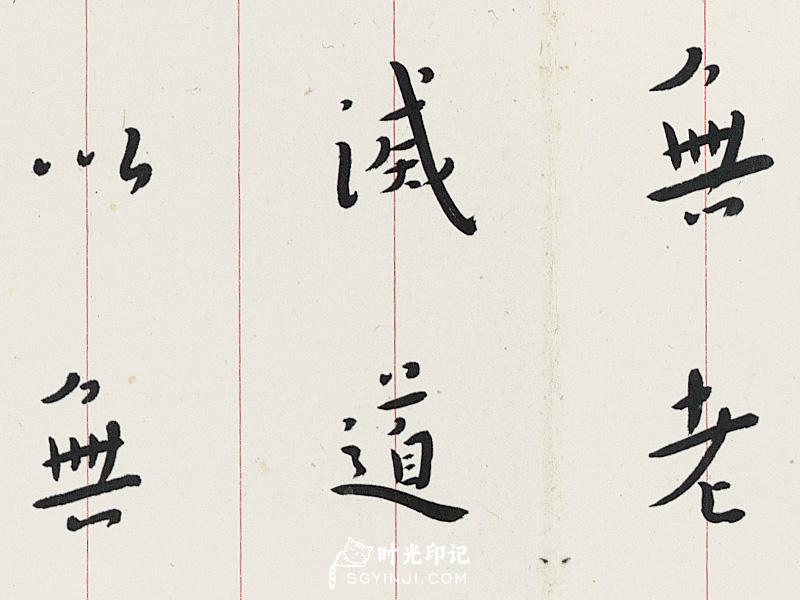 無老
滅道
以無
时光印记
SGYINJI.COM